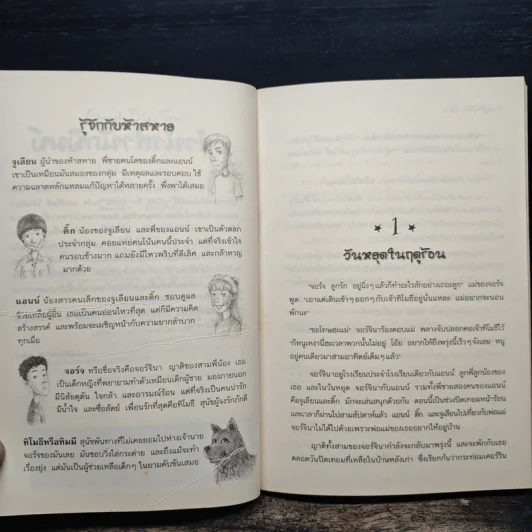 รู้จักกับห้าสหาย
จูเลียน ผู้นำของห้าสหาย พี่ชายคนโตของดิ๊กและแอนน์
เขาเป็นเหมือนมันสมองของกลุ่ม มีเหตุผลและรอบคอบ ใช้
ความฉลาดหลักแหลมแก้ปัญหาได้หลายครั้ง พึ่งพาได้เสมอ
ดิ๊ก น้องของจูเลียน และพี่ของแอนน์ เขาเป็นตัวตลก
ประจำกลุ่ม คอยแหย่คนโน้นคนนี้ประจำ แต่ที่จริงเข้าใจ
คนรอบข้างมาก แถมยังมีไหวพริบที่ดีเลิศ และกล้าหาญ
มากด้วย
แอนน์ น้องสาวคนเล็กของจูเลียนและดิ๊ก ชอบดูแล
ช่วยเหลือผู้อื่น เธอเป็นคนอ่อนไหวที่สุด แต่ก็มีความคิด
สร้างสรรค์ และพร้อมจะเผชิญหน้ากับความยากลำบาก
ทุกเมื่อ
จอร์จ หรือชื่อจริงคือจอร์จินา ญาติของสามพี่น้อง เธอ
เป็นเด็กหญิงที่พยายามทำตัวเหมือนเด็กผู้ชาย มองภายนอก
มีนิสัยดุดัน ใจกล้า และอารมณ์ร้อน แต่ที่จริงเป็นคนน่ารัก
มีน้ำใจ และซื่อสัตย์ เพื่อนรักที่สุดคือทิโมธี สุนัขผู้จงรักภักดี
ทิโมธีหรือทิมมี สุนัขพันทางที่ไม่เคยยอมไปห่างเจ้านาย
จอร์จของมันเลย มันชอบวิ่งไล่กระต่าย และถึงแม้จะทำ
เรื่องยุ่ง แต่มันเป็นผู้ช่วยเหลือเด็กๆ ในยามคับขันเสมอ
1
วันหยุดในฤดูร้อน
"จอร์จ ลูกรัก อยู่นิ่งๆ แล้วก็ทำอะไรสักอย่างเถอะลูก" แม่ของจอร์จ
พูด "เอาแต่เดินเข้าๆ ออกๆ กับเจ้าทิโมธีอยู่นั่นแหละ แม่อยากจะนอน
พักนะ"
"ขอโทษฮะแม่" จอร์จินาร้องตอบแม่ พลางจับปลอกคอเจ้าทิโมธีไว้
"ก็หนูเหงานี่ฮะเวลาพวกนั้นไม่อยู่ โอ๊ย อยากให้ถึงพรุ่งนี้เร็วๆ จังเลย หนู
อยู่คนเดียวมาสามอาทิตย์เต็มๆ แล้ว"
จอร์จินาอยู่โรงเรียนประจำโรงเรียนเดียวกับแอนน์ ลูกพี่ลูกน้องของ
เธอ และในวันหยุด จอร์จินากับแอนน์ รวมทั้งพี่ชายสองคนของแอนน์
คือจูเลียนและดิ๊ก มักจะเล่นสนุกด้วยกัน ตอนนี้เป็นช่วงปิดเทอมหน้าร้อน
และเวลาก็ผ่านไปสามสัปดาห์แล้ว แอนน์ ดิ๊ก และจูเลียนไปเที่ยวกับพ่อแม่
จอร์จินาไม่ได้ไปด้วยเพราะพ่อแม่ของเธออยากให้อยู่บ้าน
ญาติทั้งสามของจอร์จินากำลังจะกลับมาพรุ่งนี้ และจะพักกับเธอ
ตลอดวันปิดเทอมที่เหลือในบ้านหลังเก่า ซึ่งเรียกกันว่ากระท่อมเคอร์ริน